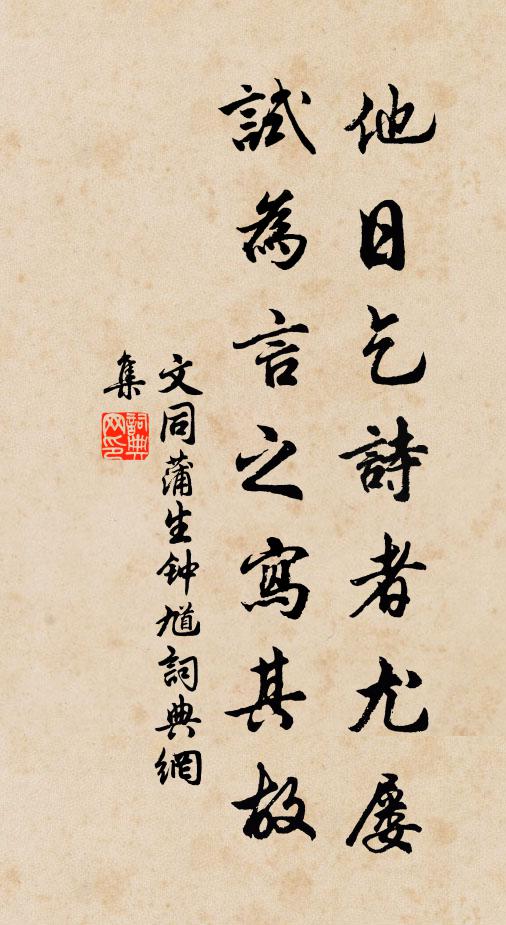 他日乞詩者尤屡
試為言之寫其故
文同蒲生钟馗詞典網
集
詞典網印